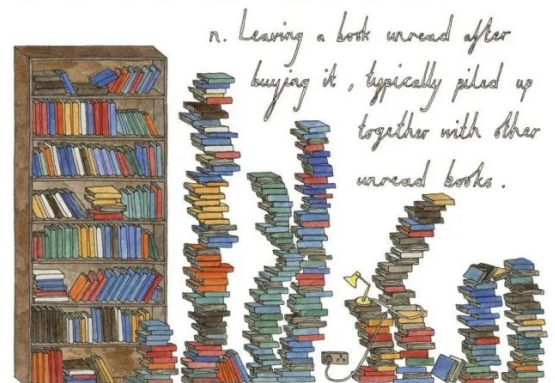 n. Leaving a book unread after
buying it, typically piled up
together with other
unread books.